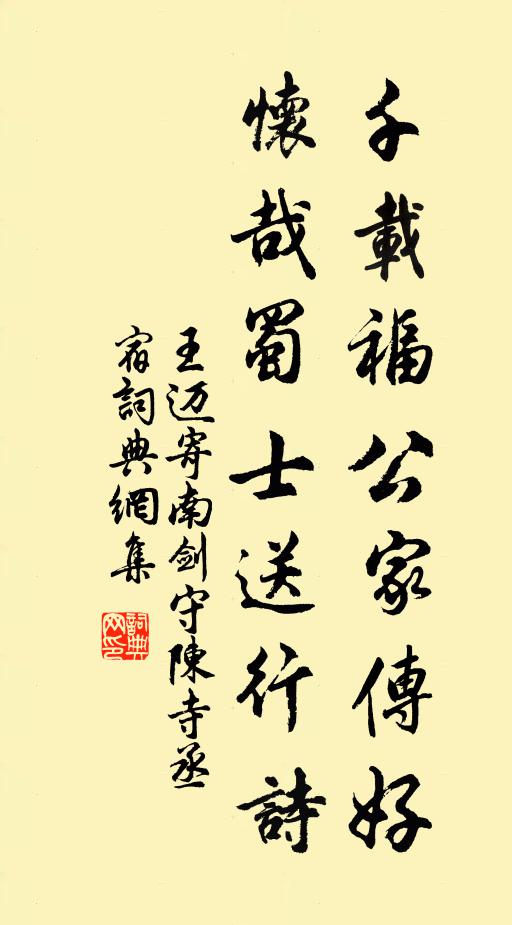 千載福公家傳好
懷哉蜀士送行詩
王迈寄南劍守陳寺丞
宿詞典網集
詞典网印